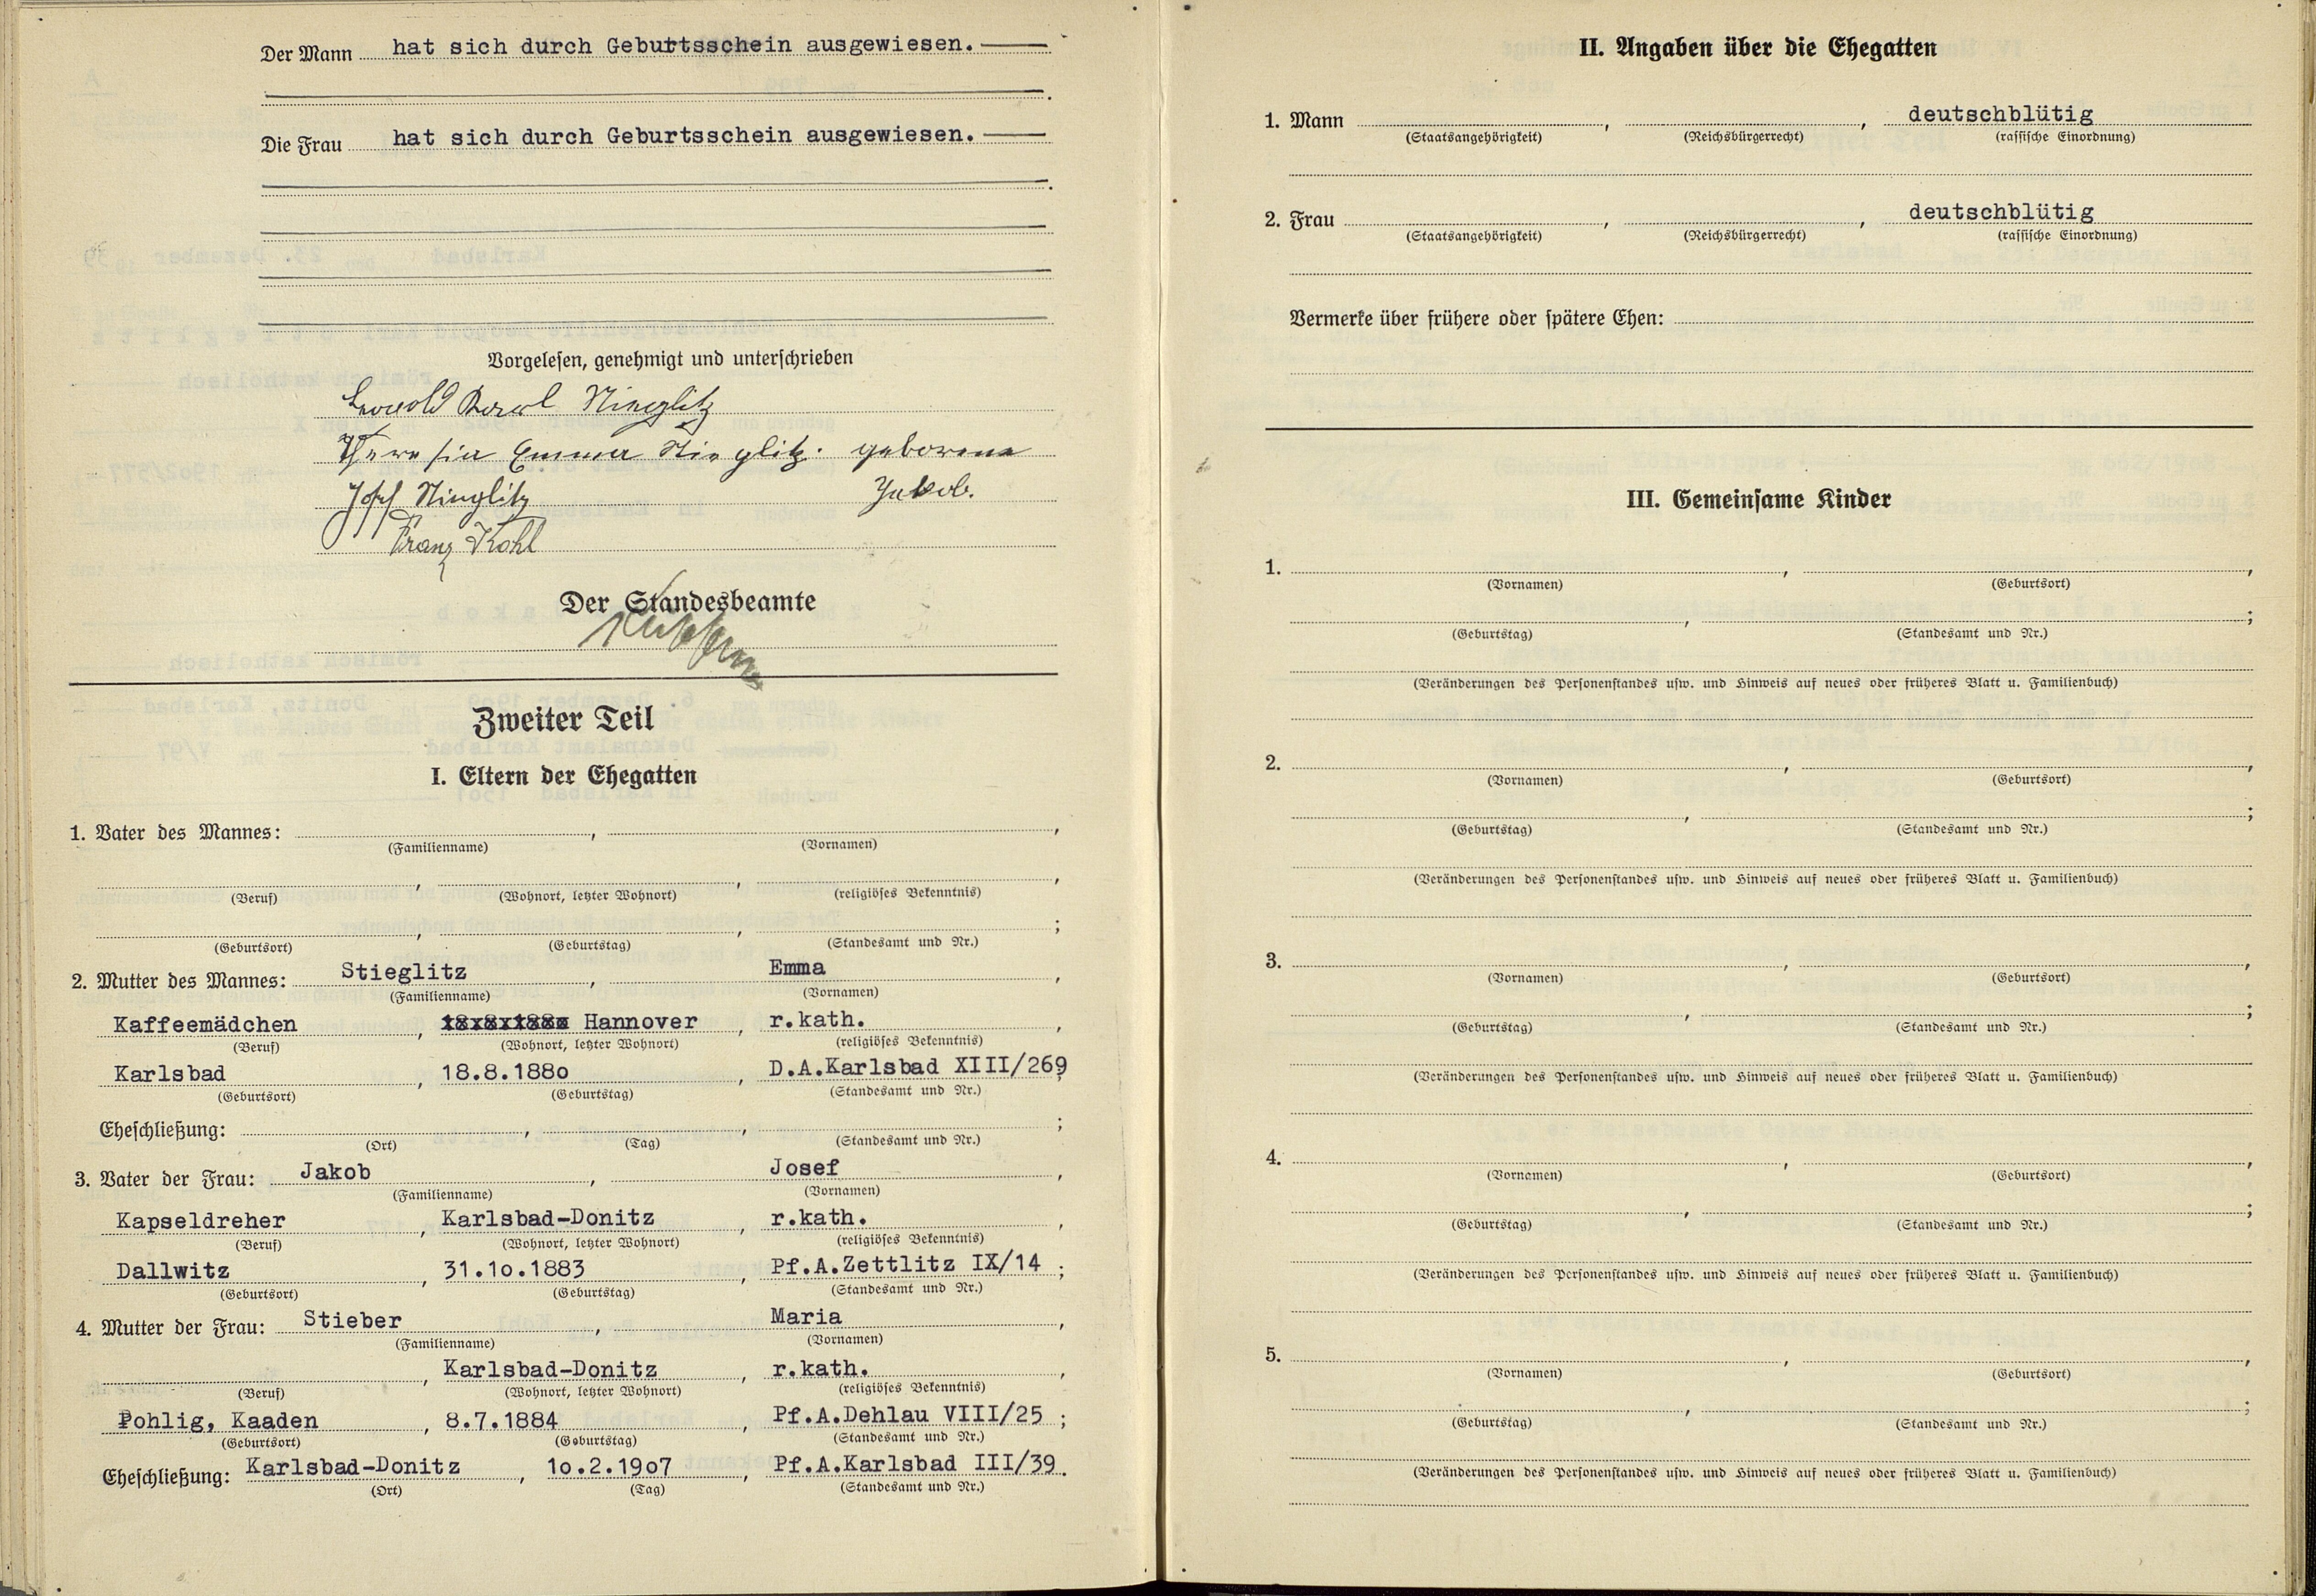 Der Mann hat sich durch Geburtsschein ausgewiesen.
Die Frau hat sich durch Geburtsschein ausgewiesen.
Vorgelesen, genehmigt und unterschrieben
Leopold Karl Stieglitz
Theresia Emma Stieglitz geborene
Josef Stieglitz Jakob.
Franz Kohl
Der Standesbeamte
Zweiter Teil
I. Eltern der Ehegatten
1. Vater des Mannes: , ,
(Familienname) (Vornamen)
, , ,
(Beruf) (Wohnort, letzter Wohnort) (religiöses Bekenntnis)
, , ;
(Geburtsort) (Geburtstag) (Standesamt und Nr.)
2. Mutter des Mannes: Stieglitz , Emma ,
(Familienname) (Vornamen)
Kaffeemädchen , Hannover , r.kath. ,
(Beruf) (Wohnort, letzter Wohnort) (religiöses Bekenntnis)
Karlsbad , 18.8.1880 , D.A.Karlsbad XIII/269;
(Geburtsort) (Geburtstag) (Standesamt und Nr.)
Eheschließung: , , ;
(Ort) (Tag) (Standesamt und Nr.)
3. Vater der Frau: Jakob , Josef ,
(Familienname) (Vornamen)
Kapseldreher , Karlsbad-Donitz , r.kath. ,
(Beruf) (Wohnort, letzter Wohnort) (religiöses Bekenntnis)
Dallwitz , 31.10.1883 , Pf.A.Zettlitz IX/14 ;
(Geburtsort) (Geburtstag) (Standesamt und Nr.)
4. Mutter der Frau: Stieber , Maria ,
(Familienname) (Vornamen)
, Karlsbad-Donitz , r.kath. ,
(Beruf) (Wohnort, letzter Wohnort) (religiöses Bekenntnis)
Pohlig, Kaaden , 8.7.1884 , Pf.A.Dehlau VIII/25 ;
(Geburtsort) (Geburtstag) (Standesamt und Nr.)
Eheschließung: Karlsbad-Donitz , 10.2.1907 , Pf.A.Karlsbad III/39.
(Ort) (Tag) (Standesamt und Nr.)
II. Angaben über die Ehegatten
1. Mann , , deutschblütig
(Staatsangehörigkeit) (Reichsbürgerrecht) (rassische Einordnung)
2. Frau , , deutschblütig
(Staatsangehörigkeit) (Reichsbürgerrecht) (rassische Einordnung)
Vermerke über frühere oder spätere Ehen:
III. Gemeinsame Kinder
1. , ,
(Vornamen) (Geburtsort)
, ;
(Geburtstag) (Standesamt und Nr.)
(Veränderungen des Personenstandes usw. und Hinweis auf neues oder früheres Blatt u. Familienbuch)
2. , ,
(Vornamen) (Geburtsort)
, ;
(Geburtstag) (Standesamt und Nr.)
(Veränderungen des Personenstandes usw. und Hinweis auf neues oder früheres Blatt u. Familienbuch)
3. , ,
(Vornamen) (Geburtsort)
, ;
(Geburtstag) (Standesamt und Nr.)
(Veränderungen des Personenstandes usw. und Hinweis auf neues oder früheres Blatt u. Familienbuch)
4. , ,
(Vornamen) (Geburtsort)
, ;
(Geburtstag) (Standesamt und Nr.)
(Veränderungen des Personenstandes usw. und Hinweis auf neues oder früheres Blatt u. Familienbuch)
5. , ,
(Vornamen) (Geburtsort)
, ;
(Geburtstag) (Standesamt und Nr.)
(Veränderungen des Personenstandes usw. und Hinweis auf neues oder früheres Blatt u. Familienbuch)